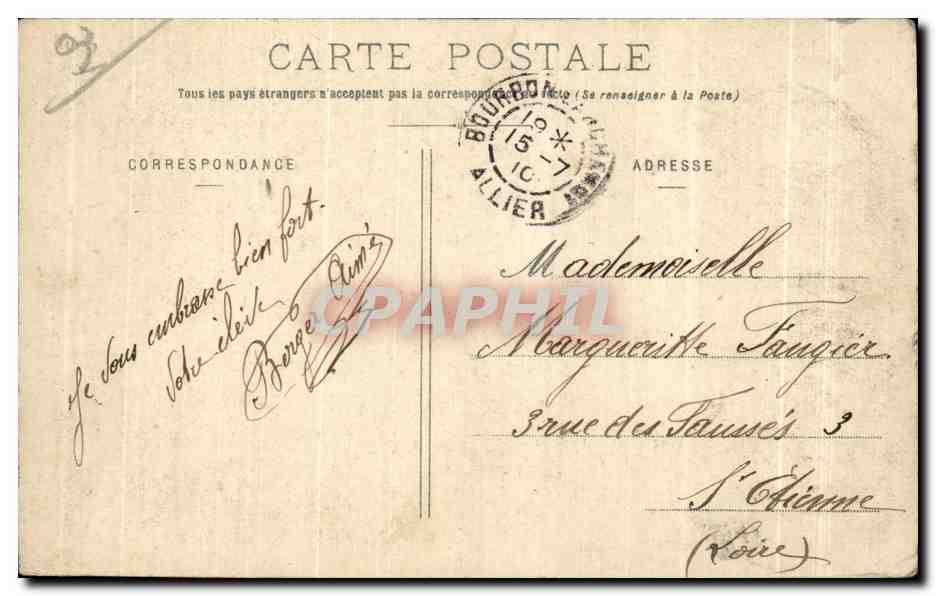 CARTE POSTALE
Tous les pays étrangers n'acceptent pas la correspondance au recto (Se renseigner à la Poste)
CORRESPONDANCE
ADRESSE
BOURBON
19 *
15 -7
10
ALLIER
Je vous embrasse bien fort.
Votre élève
Berger Aimé
Mademoiselle
Margueritte Faugier
3 rue des Faussés 3
St Étienne
(Loire)
CPAPHIL